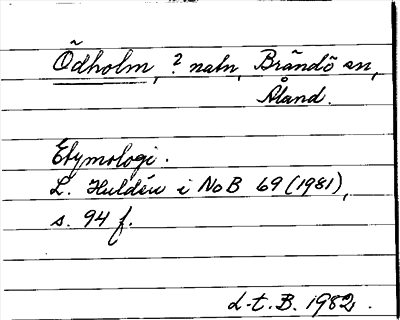 Ödholm, ? natn, Brändö sn,
Åland.
Etymologi.
L. Huldén i NoB 69 (1981),
s. 94 f.
L-t. B. 1982.